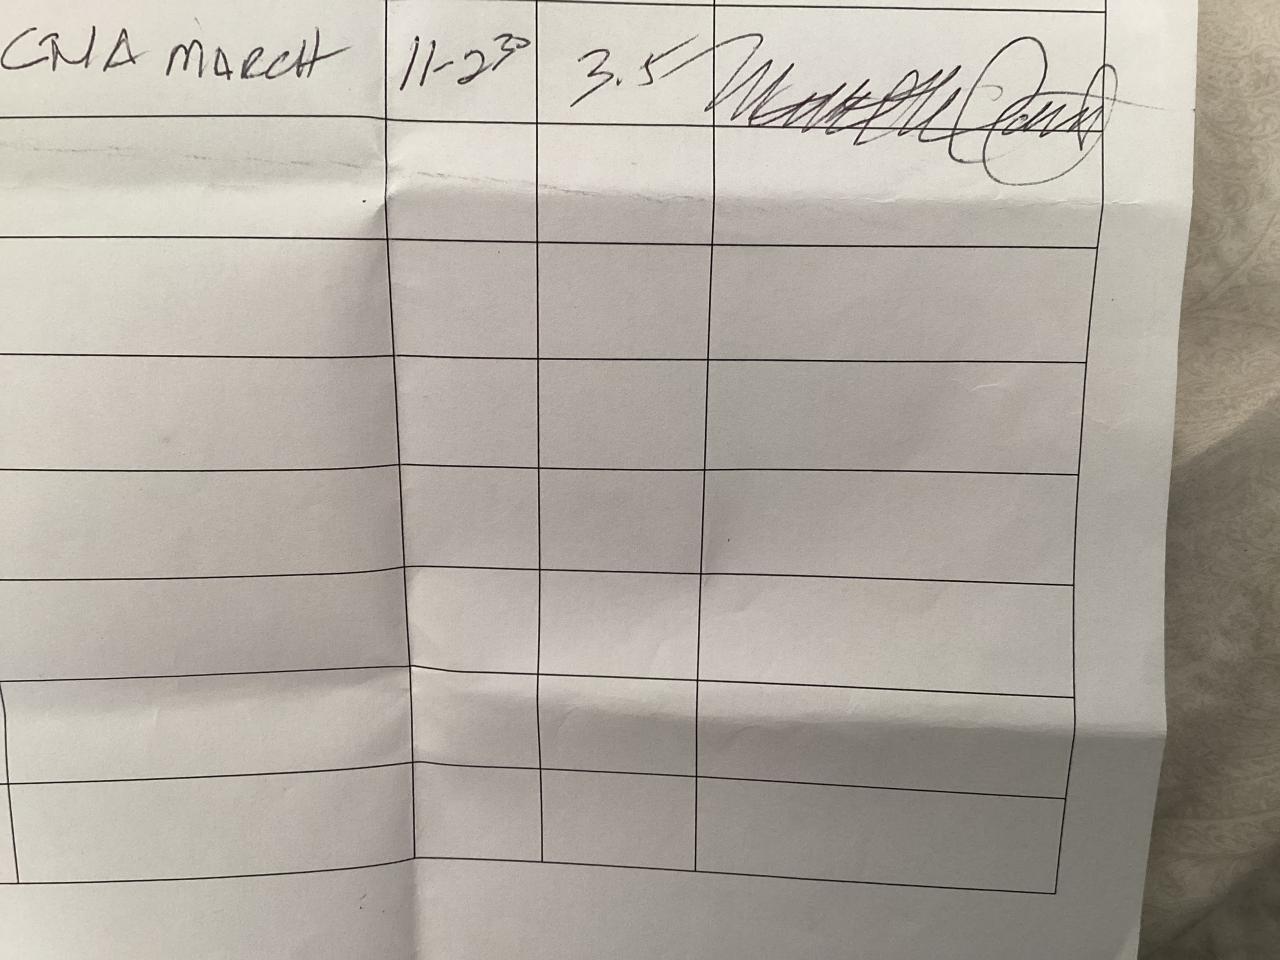 CNA MARCH 11-2³⁰ 3.5